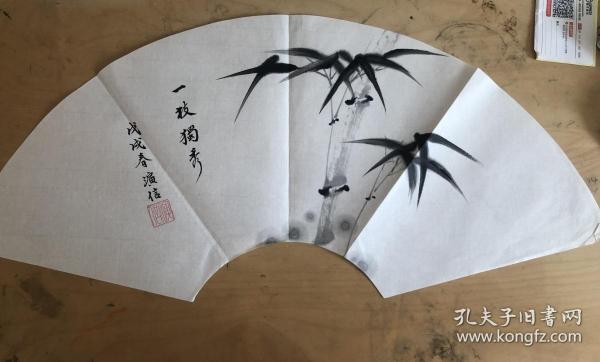 一枝獨秀
戊戌春演信
孔夫子旧书网
www.kongfz.com